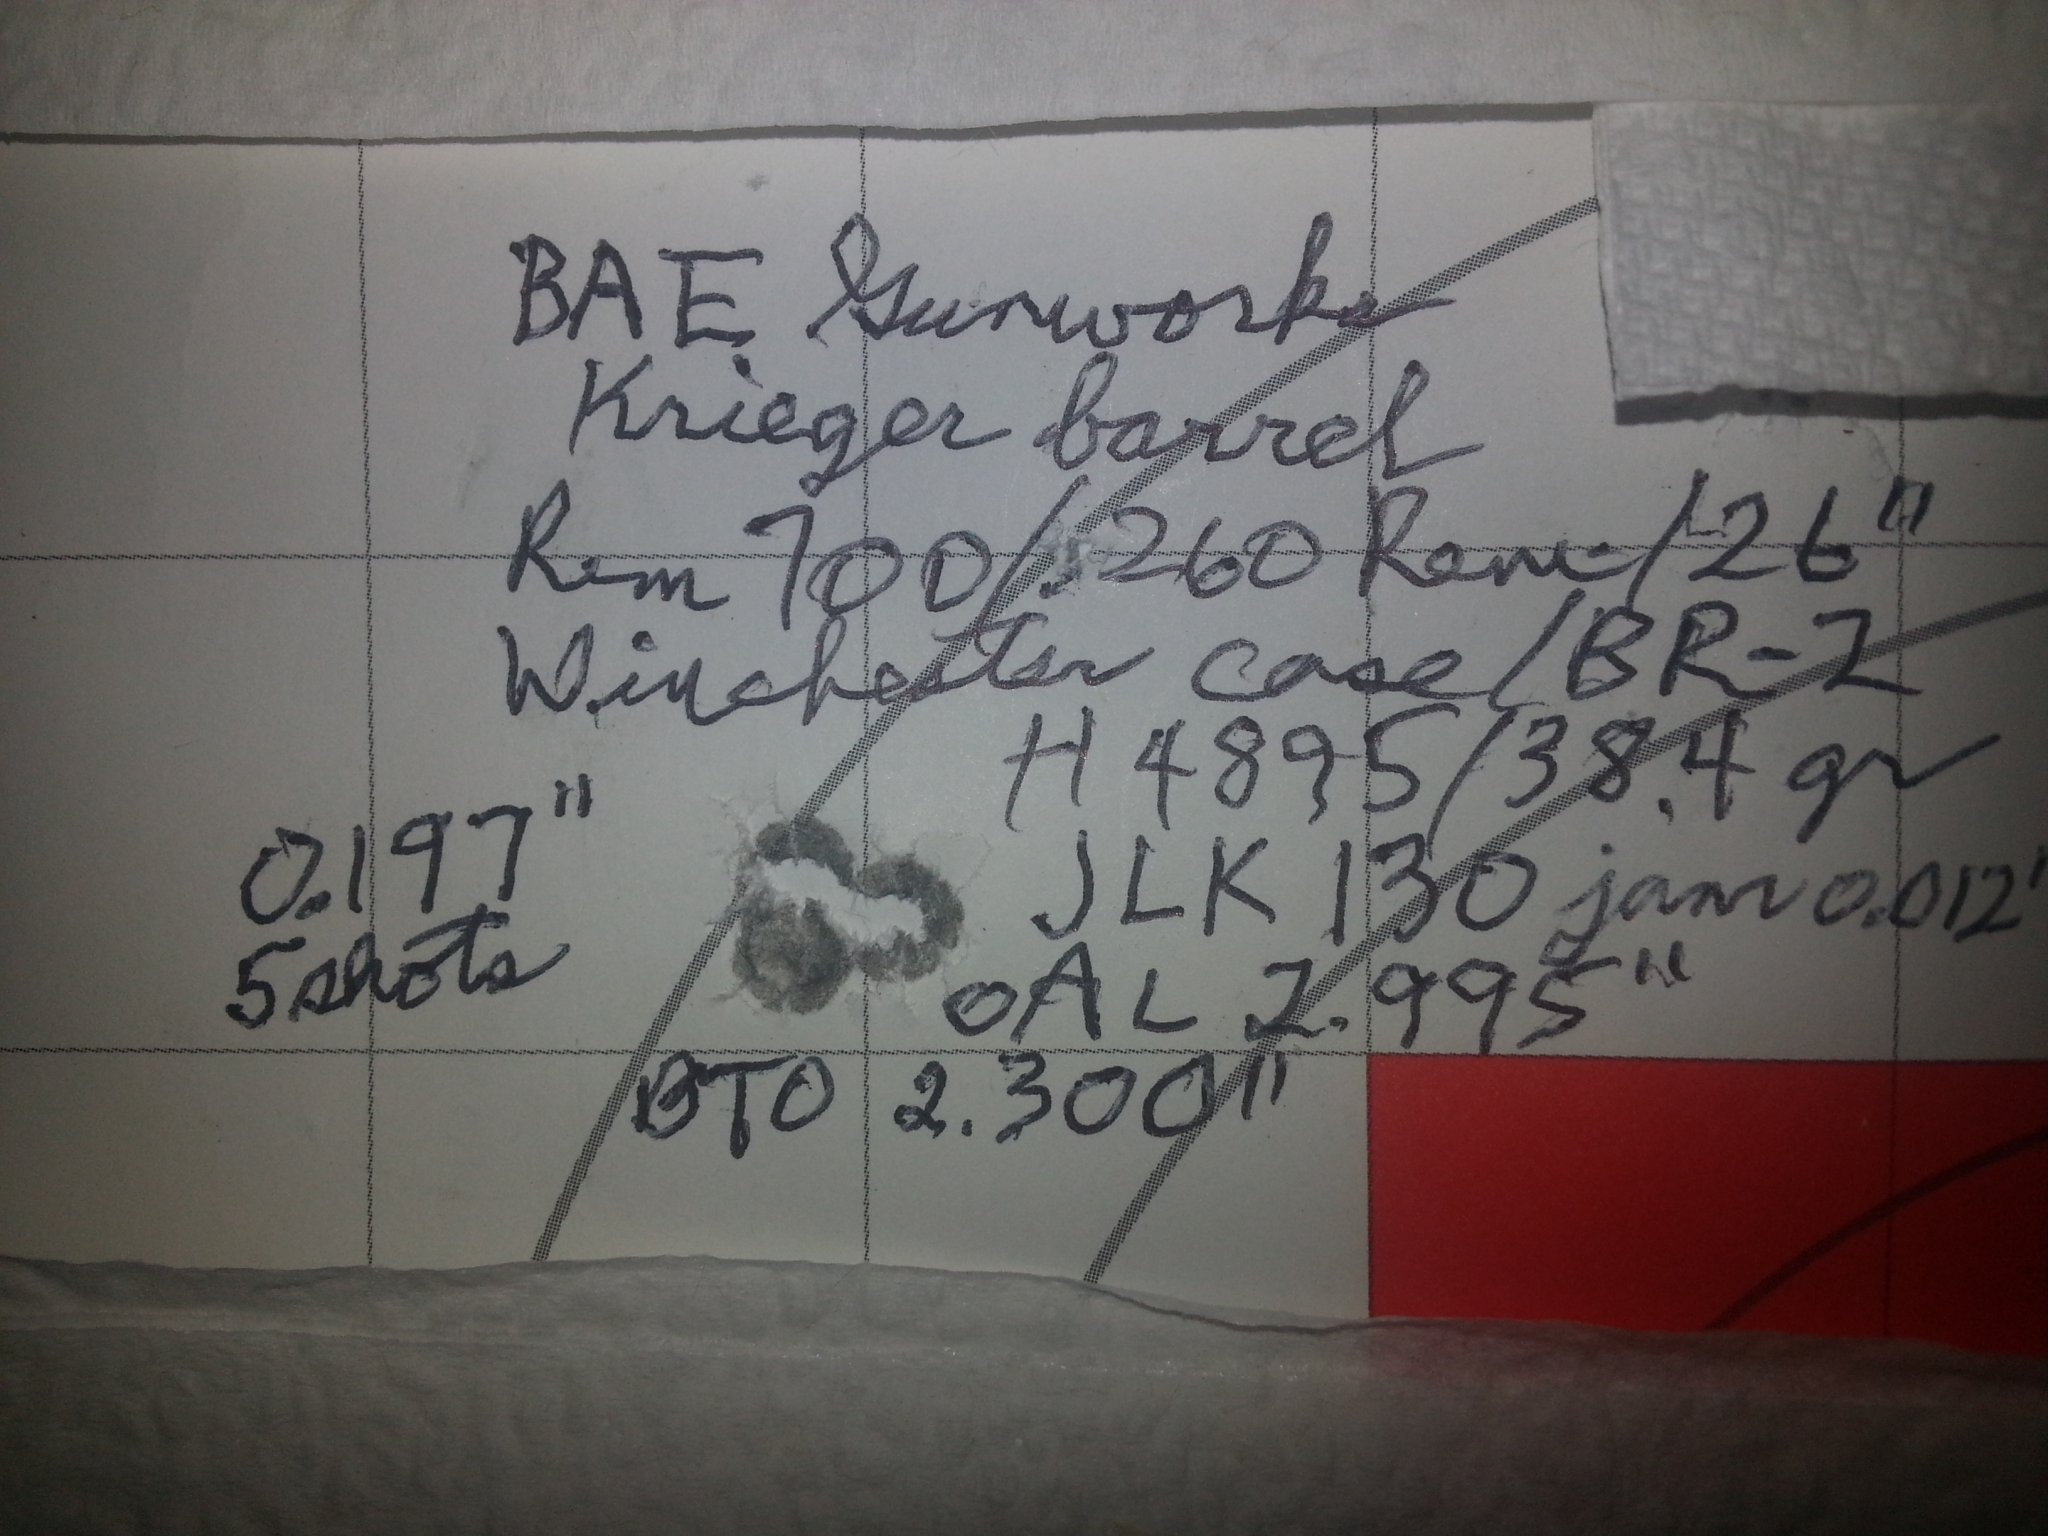 BAE Gunworks
Krieger barrel
Rem 700/.260 Rem/26"
Winchester case/BR-2
H4895/38.4 gr
0.197"
5 shots
JLK 130 jam 0.012"
OAL 2.995"
BTO 2.300"